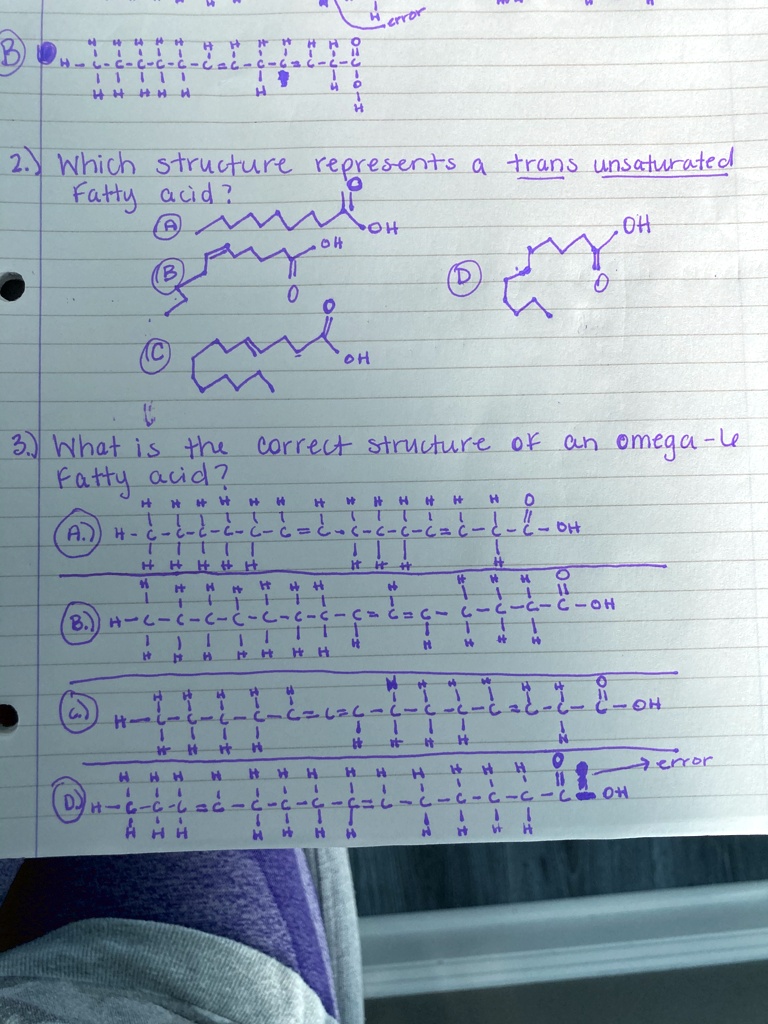 H error
B
H H H H H H H H H H H O
H-C-C-C-C-C-C=C-C-C=C-C-C
H H H H H H H O
H
2.) Which structure represents a trans unsaturated
Fatty acid?
O
A OH
OH OH
B D
O O
O
C OH
3.) What is the correct structure of an omega-6
Fatty acid?
H H H H H H H H H H H H H O
A.) H-C-C-C-C-C-C=C-C-C-C-C=C-C-C-OH
H H H H H H H H H
H H H H H H H H H H H O
B.) H-C-C-C-C-C-C-C-C=C=C-C-C-C-C-OH
H H H H H H H H H H H H
H H H H H H H H H H H O
C.) H-C-C-C-C-C=C=C-C-C-C-C=C-C-C-OH
H H H H H H H H H
H H H H H H H H H H H H H O error
D.) H-C-C-C=C-C-C-C-C=C-C-C-C-C-C OH
H H H H H H H H H H H